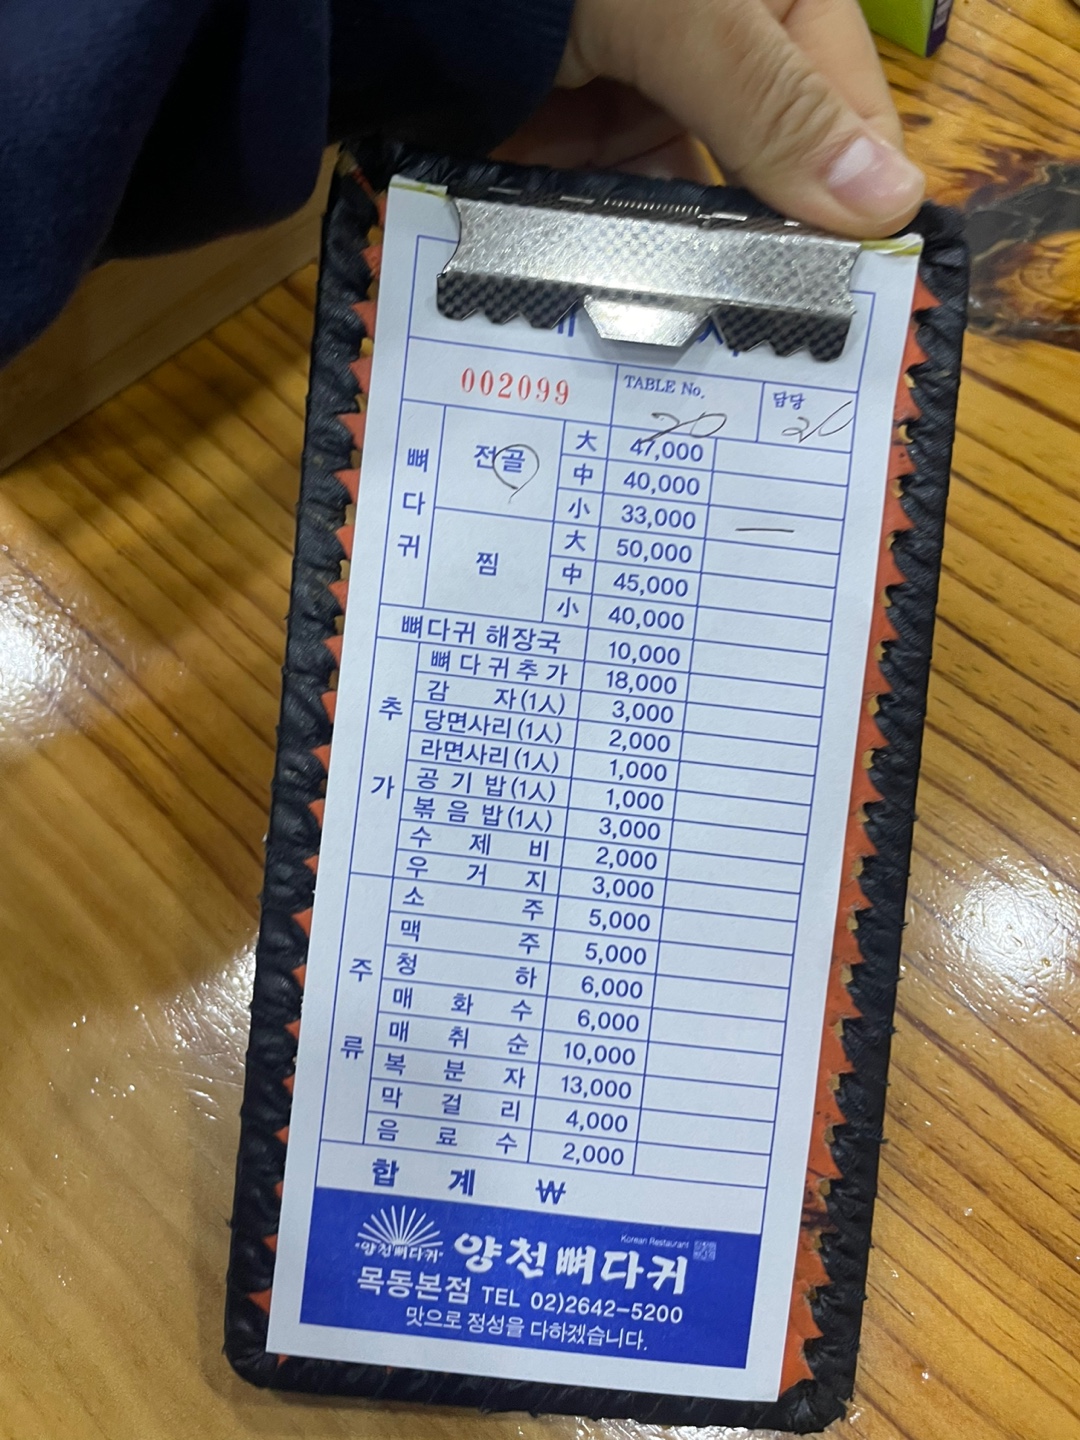 002099 TABLE No. 20 담당
뼈다귀 전골 大 47,000
中 40,000
小 33,000 —
찜 大 50,000
中 45,000
小 40,000
뼈다귀 해장국 10,000
추가 뼈다귀추가 18,000
감 자(1人) 3,000
당면사리(1人) 2,000
라면사리(1人) 1,000
공기밥(1人) 1,000
볶음밥(1人) 3,000
수 제 비 2,000
우 거 지 3,000
주류 소 주 5,000
맥 주 5,000
청 하 6,000
매 화 수 6,000
매 취 순 10,000
복 분 자 13,000
막 걸 리 4,000
음 료 수 2,000
합 계 ₩
·양천뼈다귀· 양천뼈다귀 Korean Restaurant
목동본점 TEL 02)2642-5200
맛으로 정성을 다하겠습니다.